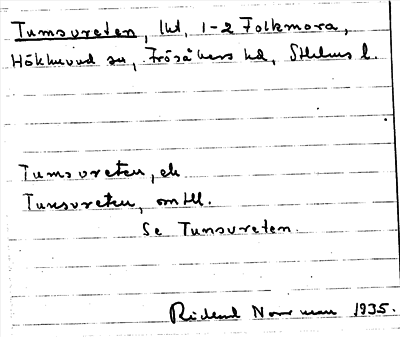 Tumsvreten, lht, 1-2 Folkmora,
Hökhuvud sn, Frösåkers hd, Sthlms l.
Tumsvreten, ek
Tunsvreten, omtll.
Se Tunsvreten.
Rickard Norrman 1935.